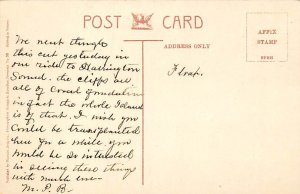 POST CARD
ADDRESS ONLY
AFFIX
STAMP
HERE
We went through
this cut yesterday in
our ride to Harrington
Sound. the cliffs are
all of Coral formation
in fact the whole Island
is of that. I wish you
Could be transplanted
here for a while you
would be so interested
in seeing these things
with much love
M. P. B.